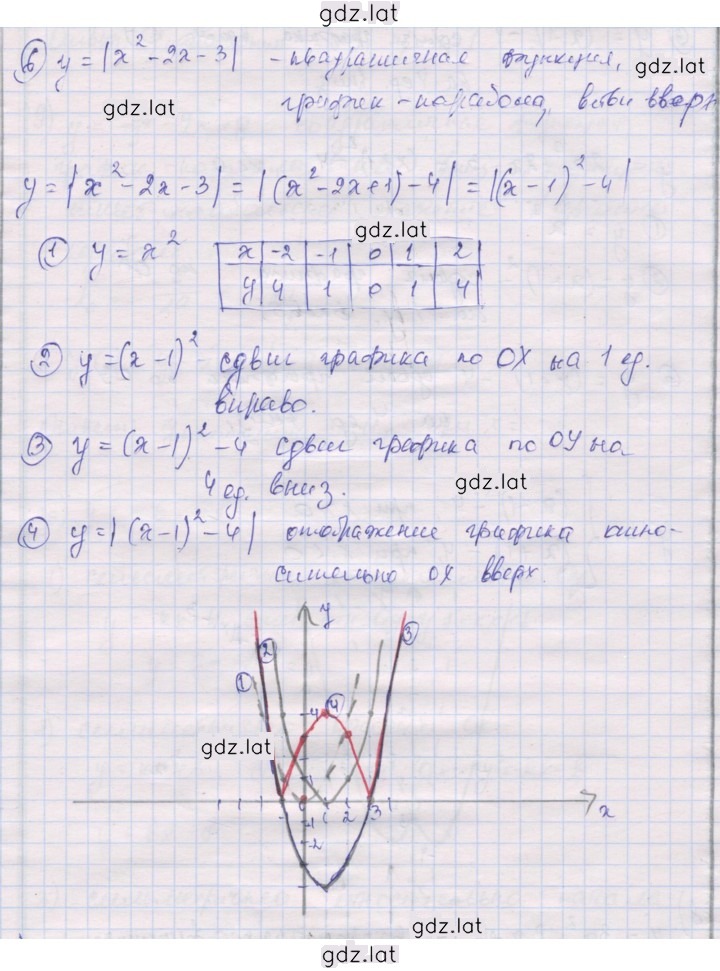 gdz.lat
б) y = |x² - 2x - 3| - квадратичная функция,
gdz.lat
gdz.lat
график - парабола, ветви вверх
y = |x² - 2x - 3| = |(x² - 2x + 1) - 4| = |(x - 1)² - 4|
gdz.lat
① y = x²
x -2 -1 0 1 2
y 4 1 0 1 4
② y = (x - 1)² сдвиг графика по OX на 1 ед.
вправо.
③ y = (x - 1)² - 4 сдвиг графика по OY на
4 ед. вниз.
gdz.lat
④ y = |(x - 1)² - 4| отображение графика отно-
сительно OX вверх.
y
③
②
①
4 ④
gdz.lat
0 1 2 3 x
-1
-2
gdz.lat
gdz.lat